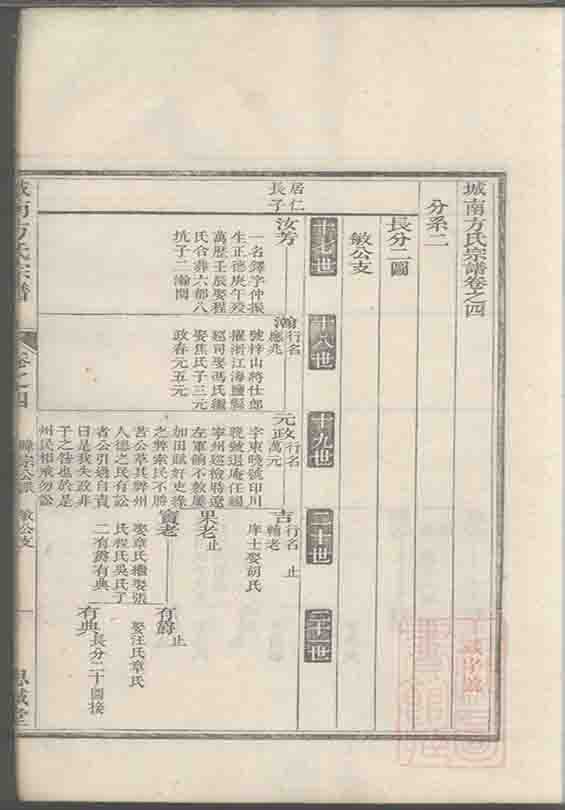 城南方氏宗譜卷之四
分系二
長分二圖
敏公支
十七世
十八世
十九世
二十世
二十一世
居仁
長子
汝芳
一名鐸字仲振
生正德庚午歿
萬歷壬辰娶程
氏合葬六都八
坑子二瀚閩
瀚
行名
應兆
號梓山將仕郎
擢浙江海鹽縣
巡司娶馮氏繼
娶焦氏子三元
政春元五元
元政
行名
萬元
字東曉號印川
晚號退庵任福
寧州巡檢將遼
左軍餉不敷屢
加田賦好吏緣
之弊案民不勝
苦公革其弊州
人德之民有訟
者公引過自責
曰是我失政非
子之咎也於是
州民相戒勿訟
吉
行名
輔老
止
庠士娶胡氏
果老
止
寶老
娶章氏繼娶張
氏程氏吳氏子
二有爵有典
有爵
止
娶汪氏章氏
有典
長分二十圖接
城南方氏宗譜
卷之四
敏公支
思誠堂